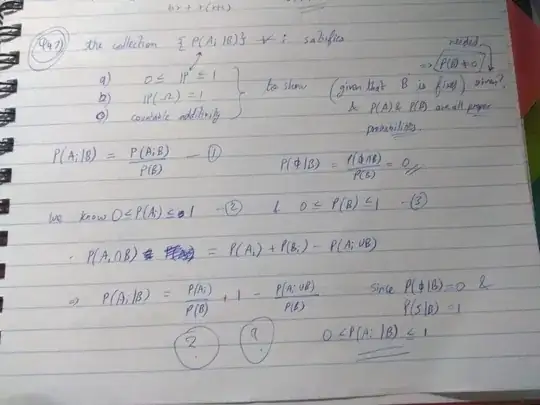 Q47) the collection { P(A_i|B)} ∀ i satisfies
a) 0 ≤ P ≤ 1
b) P(Ω) = 1
c) countable additivity
to show (given that B is fixed)
needed
=> P(B) ≠ 0 given?
& P(A) & P(B) are all proper probabilities.
P(A_i|B) = P(A_i B) / P(B) — ①
P(ϕ|B) = P(ϕ∩B) / P(B) = 0
We know 0 ≤ P(A_i) ≤ 1 — ② & 0 ≤ P(B) ≤ 1 — ③
· P(A_i ∩ B) = P(A_i) + P(B_i) − P(A_i ∪ B)
=> P(A_i|B) = P(A_i) / P(B) + 1 − P(A_i ∪ B) / P(B)
Since P(ϕ|B) = 0 &
P(S|B) = 1
0 < P(A_i|B) ≤ 1